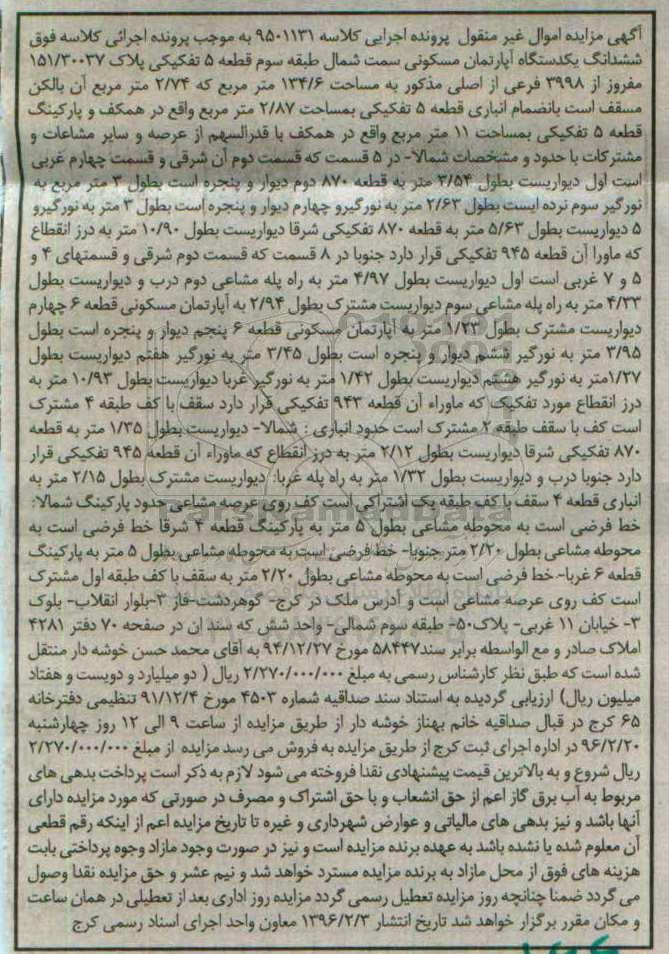 آگهی مزایده اموال غیر منقول پرونده اجرایی کلاسه ۹۵۰۱۱۳۱ به موجب پرونده اجرائی کلاسه فوق
ششدانگ یکدستگاه آپارتمان مسکونی سمت شمال طبقه سوم قطعه ۵ تفکیکی پلاک ۱۵۱/۳۰۰۳۷
مفروز از ۳۹۹۸ فرعی از اصلی مذکور به مساحت ۱۳۴/۶ متر مربع که ۲/۷۴ متر مربع آن بالکن
مسقف است بانضمام انباری قطعه ۵ تفکیکی بمساحت ۲/۸۷ متر مربع واقع در همکف و پارکینگ
قطعه ۵ تفکیکی بمساحت ۱۱ متر مربع واقع در همکف با قدرالسهم از عرصه و سایر مشاعات و
مشترکات با حدود و مشخصات شمالا- در ۵ قسمت که قسمت دوم آن شرقی و قسمت چهارم غربی
است اول دیواریست بطول ۳/۵۴ متر به قطعه ۸۷۰ دوم دیوار و پنجره است بطول ۳ متر مربع به
نورگیر سوم نرده ایست بطول ۲/۶۳ متر به نورگیرو چهارم دیوار و پنجره است بطول ۳ متر به نورگیرو
۵ دیواریست بطول ۵/۶۳ متر به قطعه ۸۷۰ تفکیکی شرقا دیواریست بطول ۱۰/۹۰ متر به درز انقطاع
که ماورا آن قطعه ۹۴۵ تفکیکی قرار دارد جنوبا در ۸ قسمت که قسمت دوم شرقی و قسمتهای ۴ و
۵ و ۷ غربی است اول دیواریست بطول ۴/۹۷ متر به راه پله مشاعی دوم درب و دیواریست بطول
۴/۳۳ متر به راه پله مشاعی سوم دیواریست مشترک بطول ۲/۹۴ به آپارتمان مسکونی قطعه ۶ چهارم
دیواریست مشترک بطول ۱/۲۳ متر به آپارتمان مسکونی قطعه ۶ پنجم دیوار و پنجره است بطول
۳/۹۵ متر به نورگیر ششم دیوار و پنجره است بطول ۳/۴۵ متر به نورگیر هفتم دیواریست بطول
۱/۲۷متر به نورگیر هشتم دیواریست بطول ۱/۴۲ متر به نورگیر غربا دیواریست بطول ۱۰/۹۳ متر به
درز انقطاع مورد تفکیک که ماوراء آن قطعه ۹۴۳ تفکیکی قرار دارد سقف با کف طبقه ۴ مشترک
است کف با سقف طبقه ۲ مشترک است حدود انباری : شمالا- دیواریست بطول ۱/۳۵ متر به قطعه
۸۷۰ تفکیکی شرقا دیواریست بطول ۲/۱۲ متر به درز انقطاع که ماوراء آن قطعه ۹۴۵ تفکیکی قرار
دارد جنوبا درب و دیواریست بطول ۱/۳۲ متر به راه پله غربا: دیواریست مشترک بطول ۲/۱۵ متر به
انباری قطعه ۴ سقف با کف طبقه یک اشتراکی است کف روی عرصه مشاعی حدود پارکینگ شمالا:
خط فرضی است به محوطه مشاعی بطول ۵ متر به پارکینگ قطعه ۴ شرقا خط فرضی است به
محوطه مشاعی بطول ۲/۲۰ متر جنوبا- خط فرضی است به محوطه مشاعی بطول ۵ متر به پارکینگ
قطعه ۶ غربا- خط فرضی است به محوطه مشاعی بطول ۲/۲۰ متر به سقف با کف طبقه اول مشترک
است کف روی عرصه مشاعی است و آدرس ملک در کرج- گوهردشت-فاز ۳-بلوار انقلاب- بلوک
۳- خیابان ۱۱ غربی- پلاک۵۰- طبقه سوم شمالی- واحد شش که سند آن در صفحه ۷۰ دفتر ۴۲۸۱
املاک صادر و مع الواسطه برابر سند۵۸۴۴۷ مورخ ۹۴/۱۲/۲۷ به آقای محمد حسن خوشه دار منتقل
شده است که طبق نظر کارشناس رسمی به مبلغ ۲/۲۷۰/۰۰۰/۰۰۰ ریال ( دو میلیارد و دویست و هفتاد
میلیون ریال) ارزیابی گردیده به استناد سند صداقیه شماره ۴۵۰۳ مورخ ۹۱/۱۲/۴ تنظیمی دفترخانه
۶۵ کرج در قبال صداقیه خانم بهناز خوشه دار از طریق مزایده از ساعت ۹ الی ۱۲ روز چهارشنبه
۹۶/۲/۲۰ در اداره اجرای ثبت کرج از طریق مزایده به فروش می رسد مزایده از مبلغ ۲/۲۷۰/۰۰۰/۰۰۰
ریال شروع و به بالاترین قیمت پیشنهادی نقدا فروخته می شود لازم به ذکر است پرداخت بدهی های
مربوط به آب برق گاز اعم از حق انشعاب و یا حق اشتراک و مصرف در صورتی که مورد مزایده دارای
آنها باشد و نیز بدهی های مالیاتی و عوارض شهرداری و غیره تا تاریخ مزایده اعم از اینکه رقم قطعی
آن معلوم شده یا نشده باشد به عهده برنده مزایده است و نیز در صورت وجود مازاد وجوه پرداختی بابت
هزینه های فوق از محل مازاد به برنده مزایده مسترد خواهد شد و نیم عشر و حق مزایده نقدا وصول
می گردد ضمنا چنانچه روز مزایده تعطیل رسمی گردد مزایده روز اداری بعد از تعطیلی در همان ساعت
و مکان مقرر برگزار خواهد شد تاریخ انتشار ۱۳۹۶/۲/۳ معاون واحد اجرای اسناد رسمی کرج